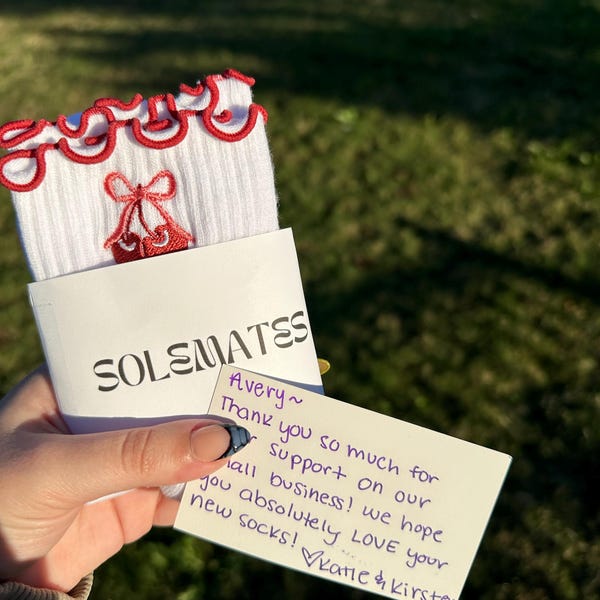 SOLEMATES
Avery~
Thank you so much for
support on our
business! we hope
you absolutely LOVE your
new socks!
♡Katie &